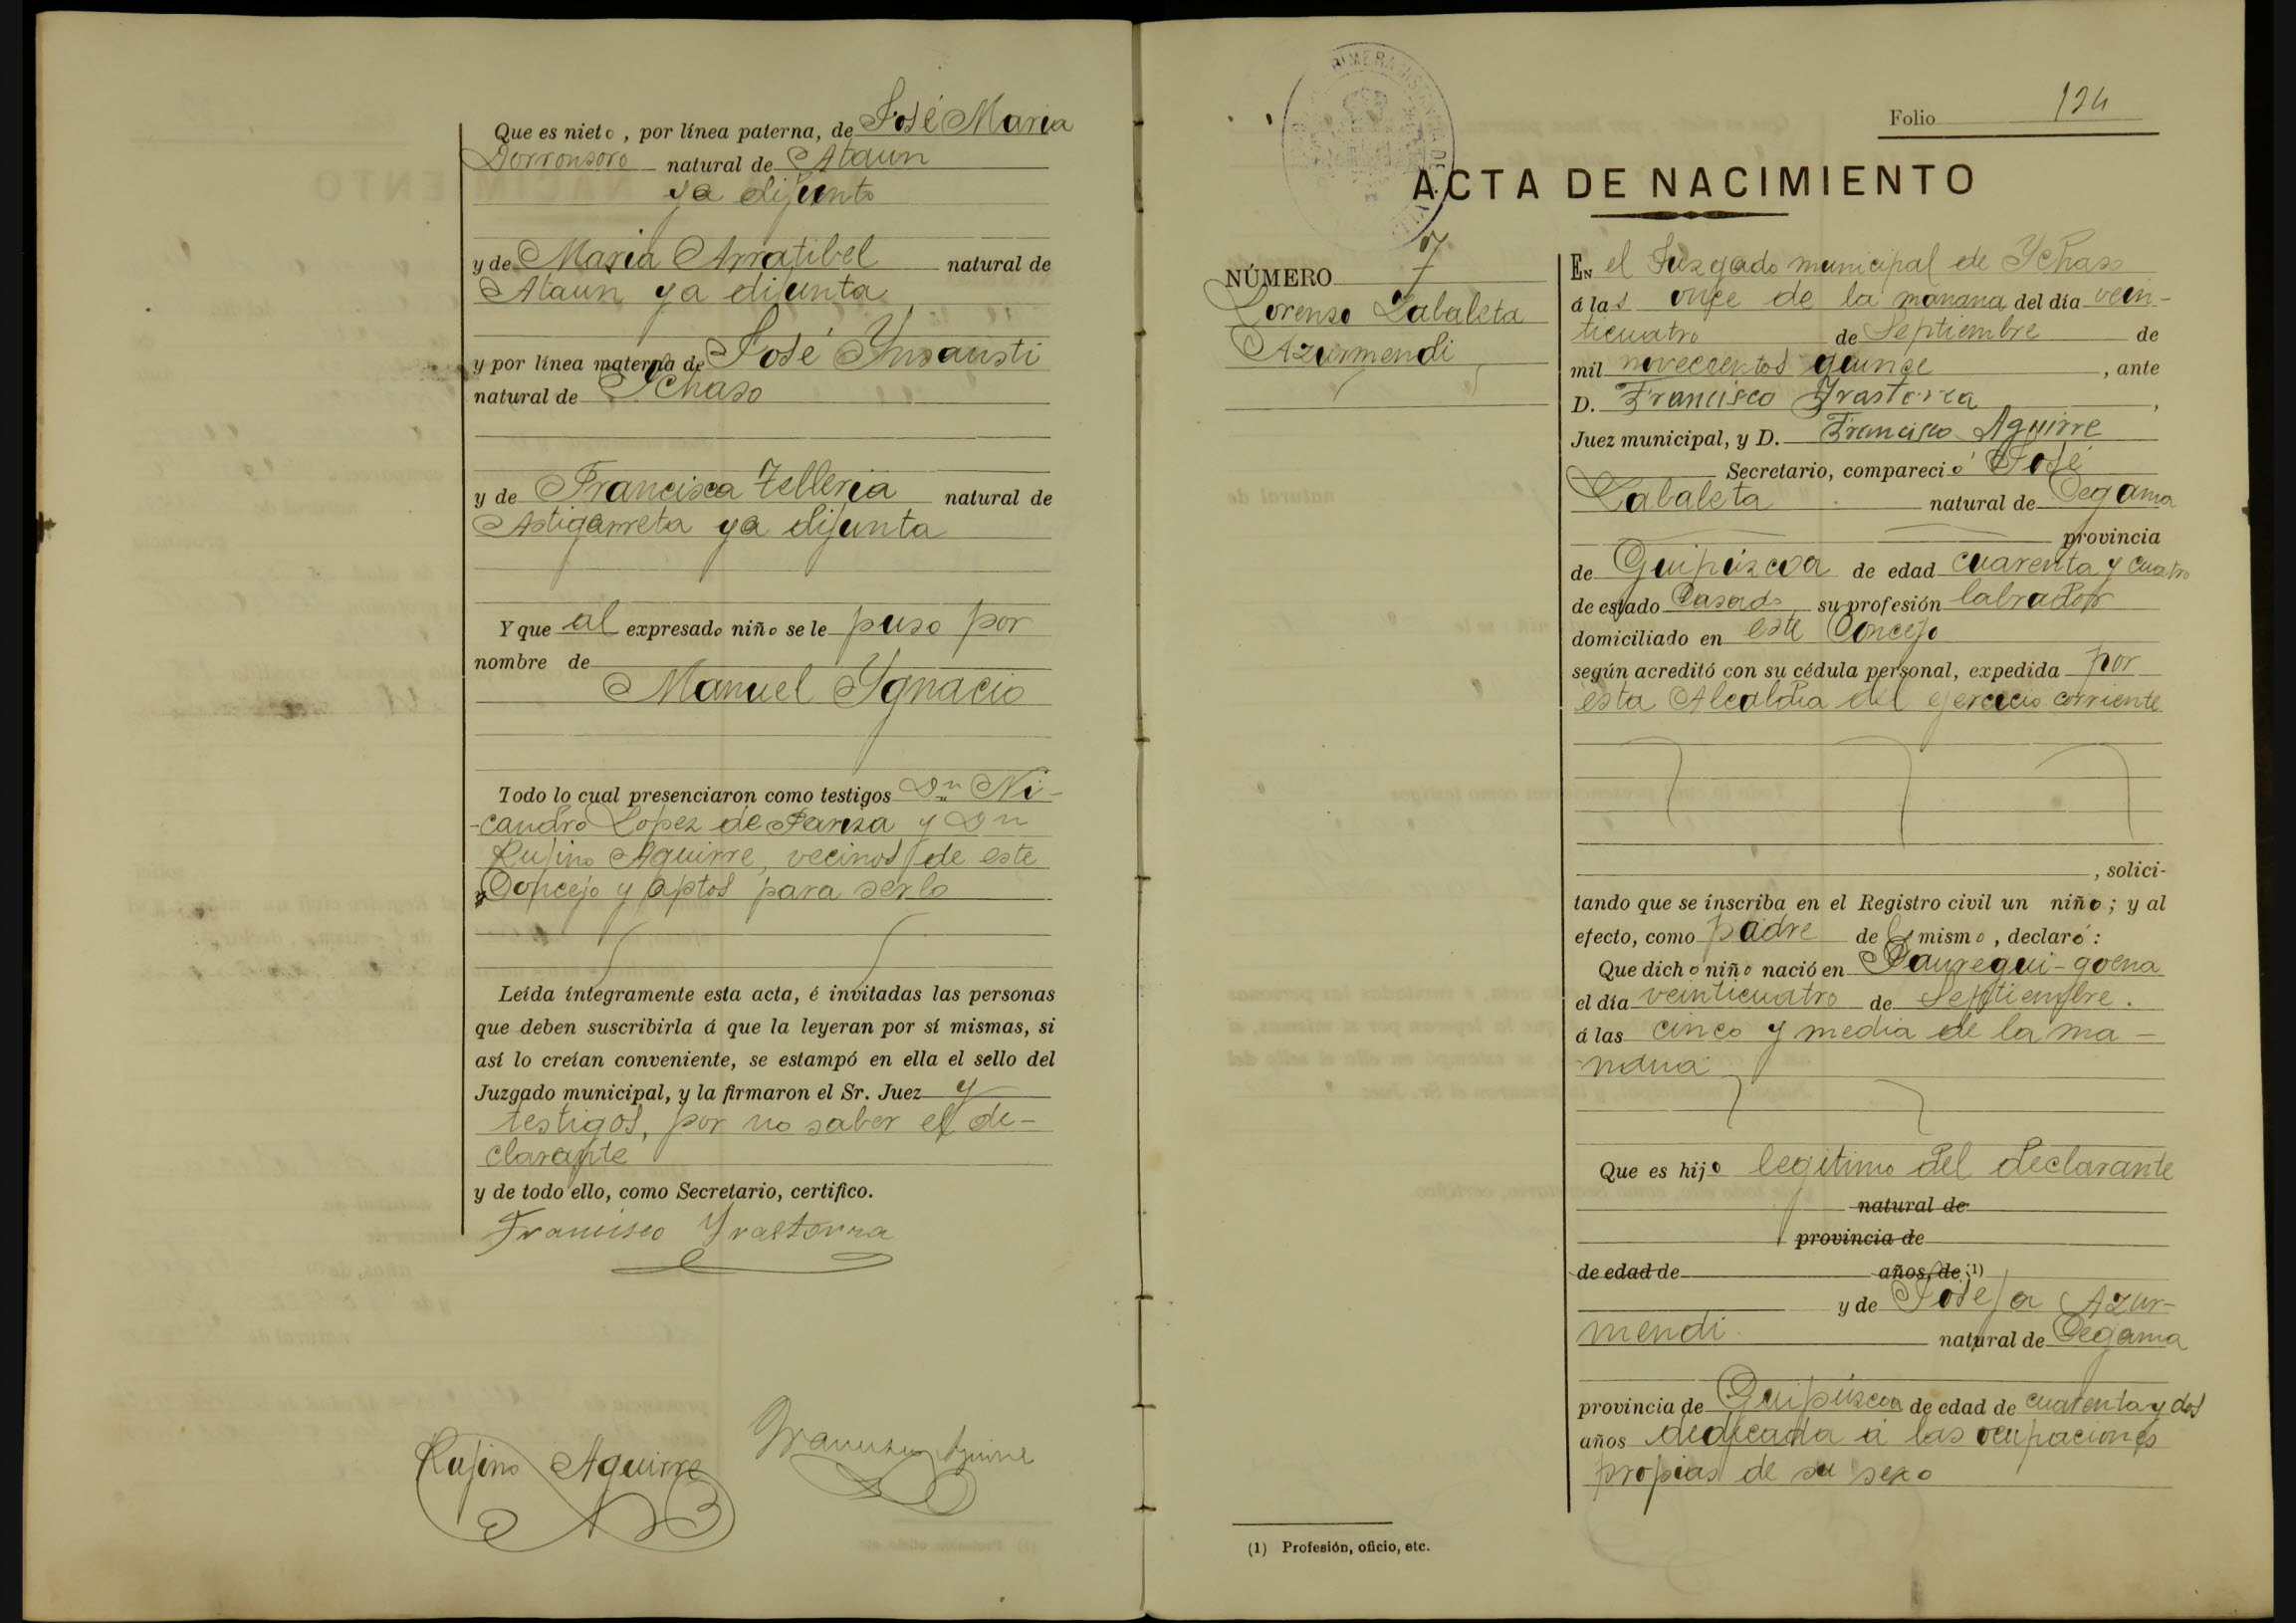 Que es nieto, por línea paterna, de José Maria
Dorronsoro natural de Ataun
ya difunto
y de Maria Arratibel natural de
Ataun ya difunta
y por línea materna de José Ynsausti
natural de Ychaso
y de Francisca Telleria natural de
Astigarreta ya difunta
Y que al expresado niño se le puso por
nombre de
Manuel Ygnacio
Todo lo cual presenciaron como testigos Dn Ni-
-candro Lopez de Pariza y Dn
Rufino Aguirre, vecinos de este
Concejo y aptos para serlo
Leída íntegramente esta acta, é invitadas las personas
que deben suscribirla á que la leyeran por sí mismas, si
así lo creían conveniente, se estampó en ella el sello del
Juzgado municipal, y la firmaron el Sr. Juez y
testigos, por no saber el de-
clarante
y de todo ello, como Secretario, certifico.
Francisco Yrastorza
Rufino Aguirre
Francisco Aguirre
Folio 124
ACTA DE NACIMIENTO
NÚMERO 7
Lorenzo Zabaleta
Azurmendi
EN el Juzgado municipal de Ychaso
á las once de la mañana del día vein-
ticuatro de Septiembre de
mil novecientos quince, ante
D. Francisco Yrastorza,
Juez municipal, y D. Francisco Aguirre
Secretario, compareció José
Zabaleta natural de Cegama
provincia
de Guipúzcoa de edad cuarenta y cuatro
de estado Casado su profesión labrador
domiciliado en este Concejo
según acreditó con su cédula personal, expedida por
esta Alcaldia del ejercicio corriente
, solici-
tando que se inscriba en el Registro civil un niño; y al
efecto, como padre de l mismo, declaró:
Que dicho niño nació en Jauregui-goena
el día veinticuatro de Septiembre.
á las cinco y media de la ma-
ñana
Que es hijo legitimo del declarante
natural de
provincia de
de edad de años, de (1)
y de Josefa Azur-
mendi natural de Cegama
provincia de Guipúzcoa de edad de cuarenta y dos
años dedicada á las ocupaciones
propias de su sexo
(1) Profesión, oficio, etc.